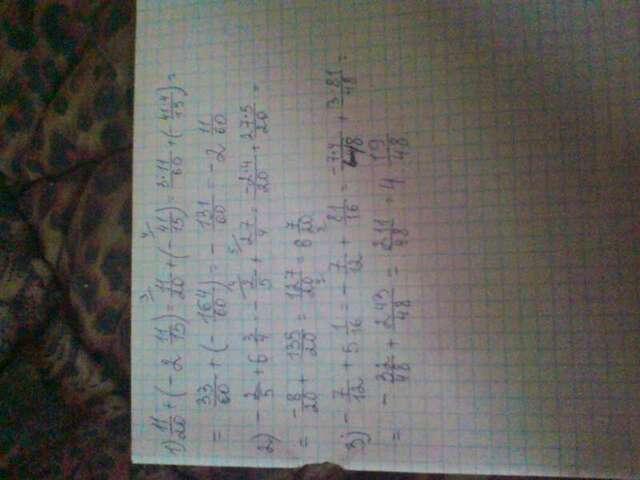 1) 11/20 + (- 2 11/15) = 11/20 + (- 41/15) = 3·11/60 + (- 41·4/15) =
= 33/60 + (- 164/60) = - 131/60 = -2 11/60
2) - 2/5 + 6 3/4 = - 2/5 + 27/4 = -2·4/20 + 27·5/20 =
= -8/20 + 135/20 = 127/20 = 6 7/20
3) - 7/12 + 5 1/16 = - 7/12 + 81/16 = -7·4/48 + 3·81/48 =
= - 32/48 + 243/48 = 211/48 = 4 19/48